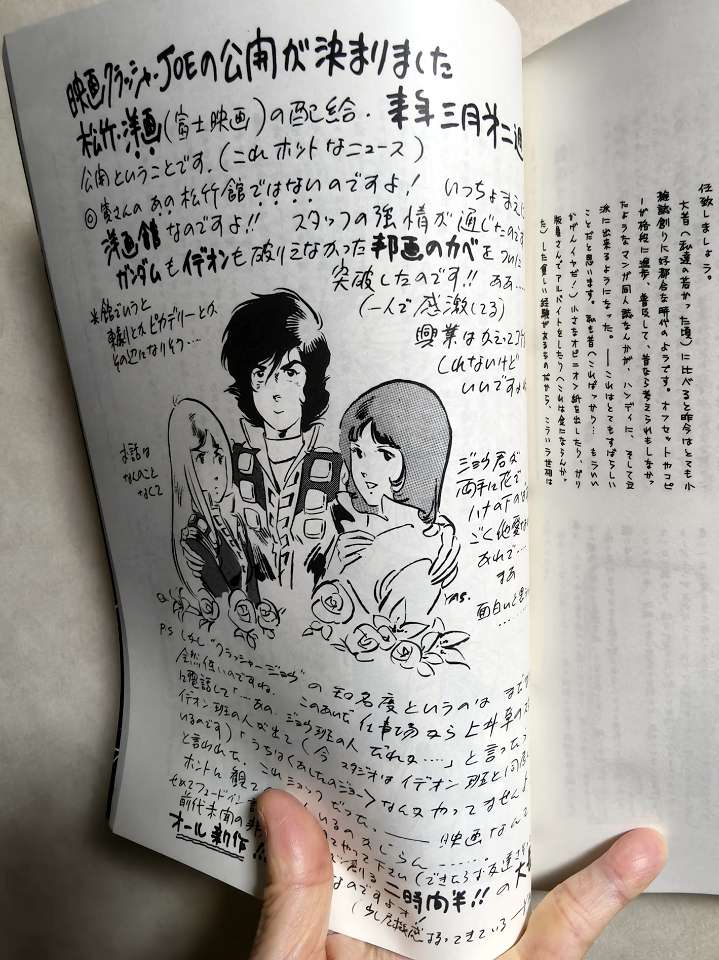 映画クラッシャーJOEの公開が決まりました
松竹・洋画(富士映画)の配給・来年三月第二週
公開ということです.(これホットなニュース)
◎寅さんのあの松竹館ではないのですよ!
洋画館なのですよ!! スタッフの強情が通じたのです
ガンダムもイデオンも破りえなかった邦画のカベをついに
突破したのです!! ああ…
(一人で感激してる)
興業は
しれないけど
いいですよね
※館でいうと
東劇とかピカデリーとか
その辺になりそう…
お話は
なんのこと
なくて
ジョウ君が
両手に花で
ハナの下の
ごく他愛な
あれで…
まあ
面白いと
P.S しかし"クラッシャージョウ"の知名度というのはまだ
全然低いのですね. このあいだ仕事場なら上井草の
に電話して「…あの,ジョウ班の人だれか….」と言ったら
イデオン班の人が出て(今スタジオはイデオン班と同居
いるのです)「うちは<あしたのジョー>なんてやってませんよ
と言われた. これショックだった. —— 映画なんて
ホントに観て
いるのかしらん……
せめてフェードイン
前代未聞の
てやって下さい(できたらお友達
オール新作!!
二時間半!!の大
なのですよォ!
(少し危機感 てきている
任致しましょう。
大昔(私達の若かった頃)に比べると昨今はとても小
雑誌創りに好都合な時代のようです。オフセットやコピ
ーが格段に進歩、普及して、昔なら考えられもしなかっ
たようなマンガ同人誌なんかが、ハンディに、そして立
派に出来るようになった。——これはとてもすばらしい
ことだと思います。私も昔(こればっかり…もういい
かげんイヤだ!)小さなオピニオン紙を出したり、ガリ
版屋さんでアルバイトをしたり(これは金にならんか
た)した貧しい経験があるものだから、こういう世相は